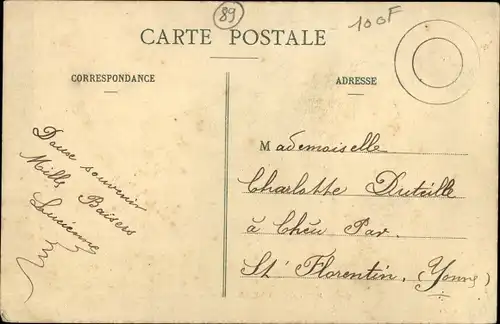 89
100F
CARTE POSTALE
CORRESPONDANCE
ADRESSE
Douse souvenir
Mille Baisers
Lucienne
Mademoiselle
Charlotte Duteille
à Chéu Par.
St Florentin, Yonne